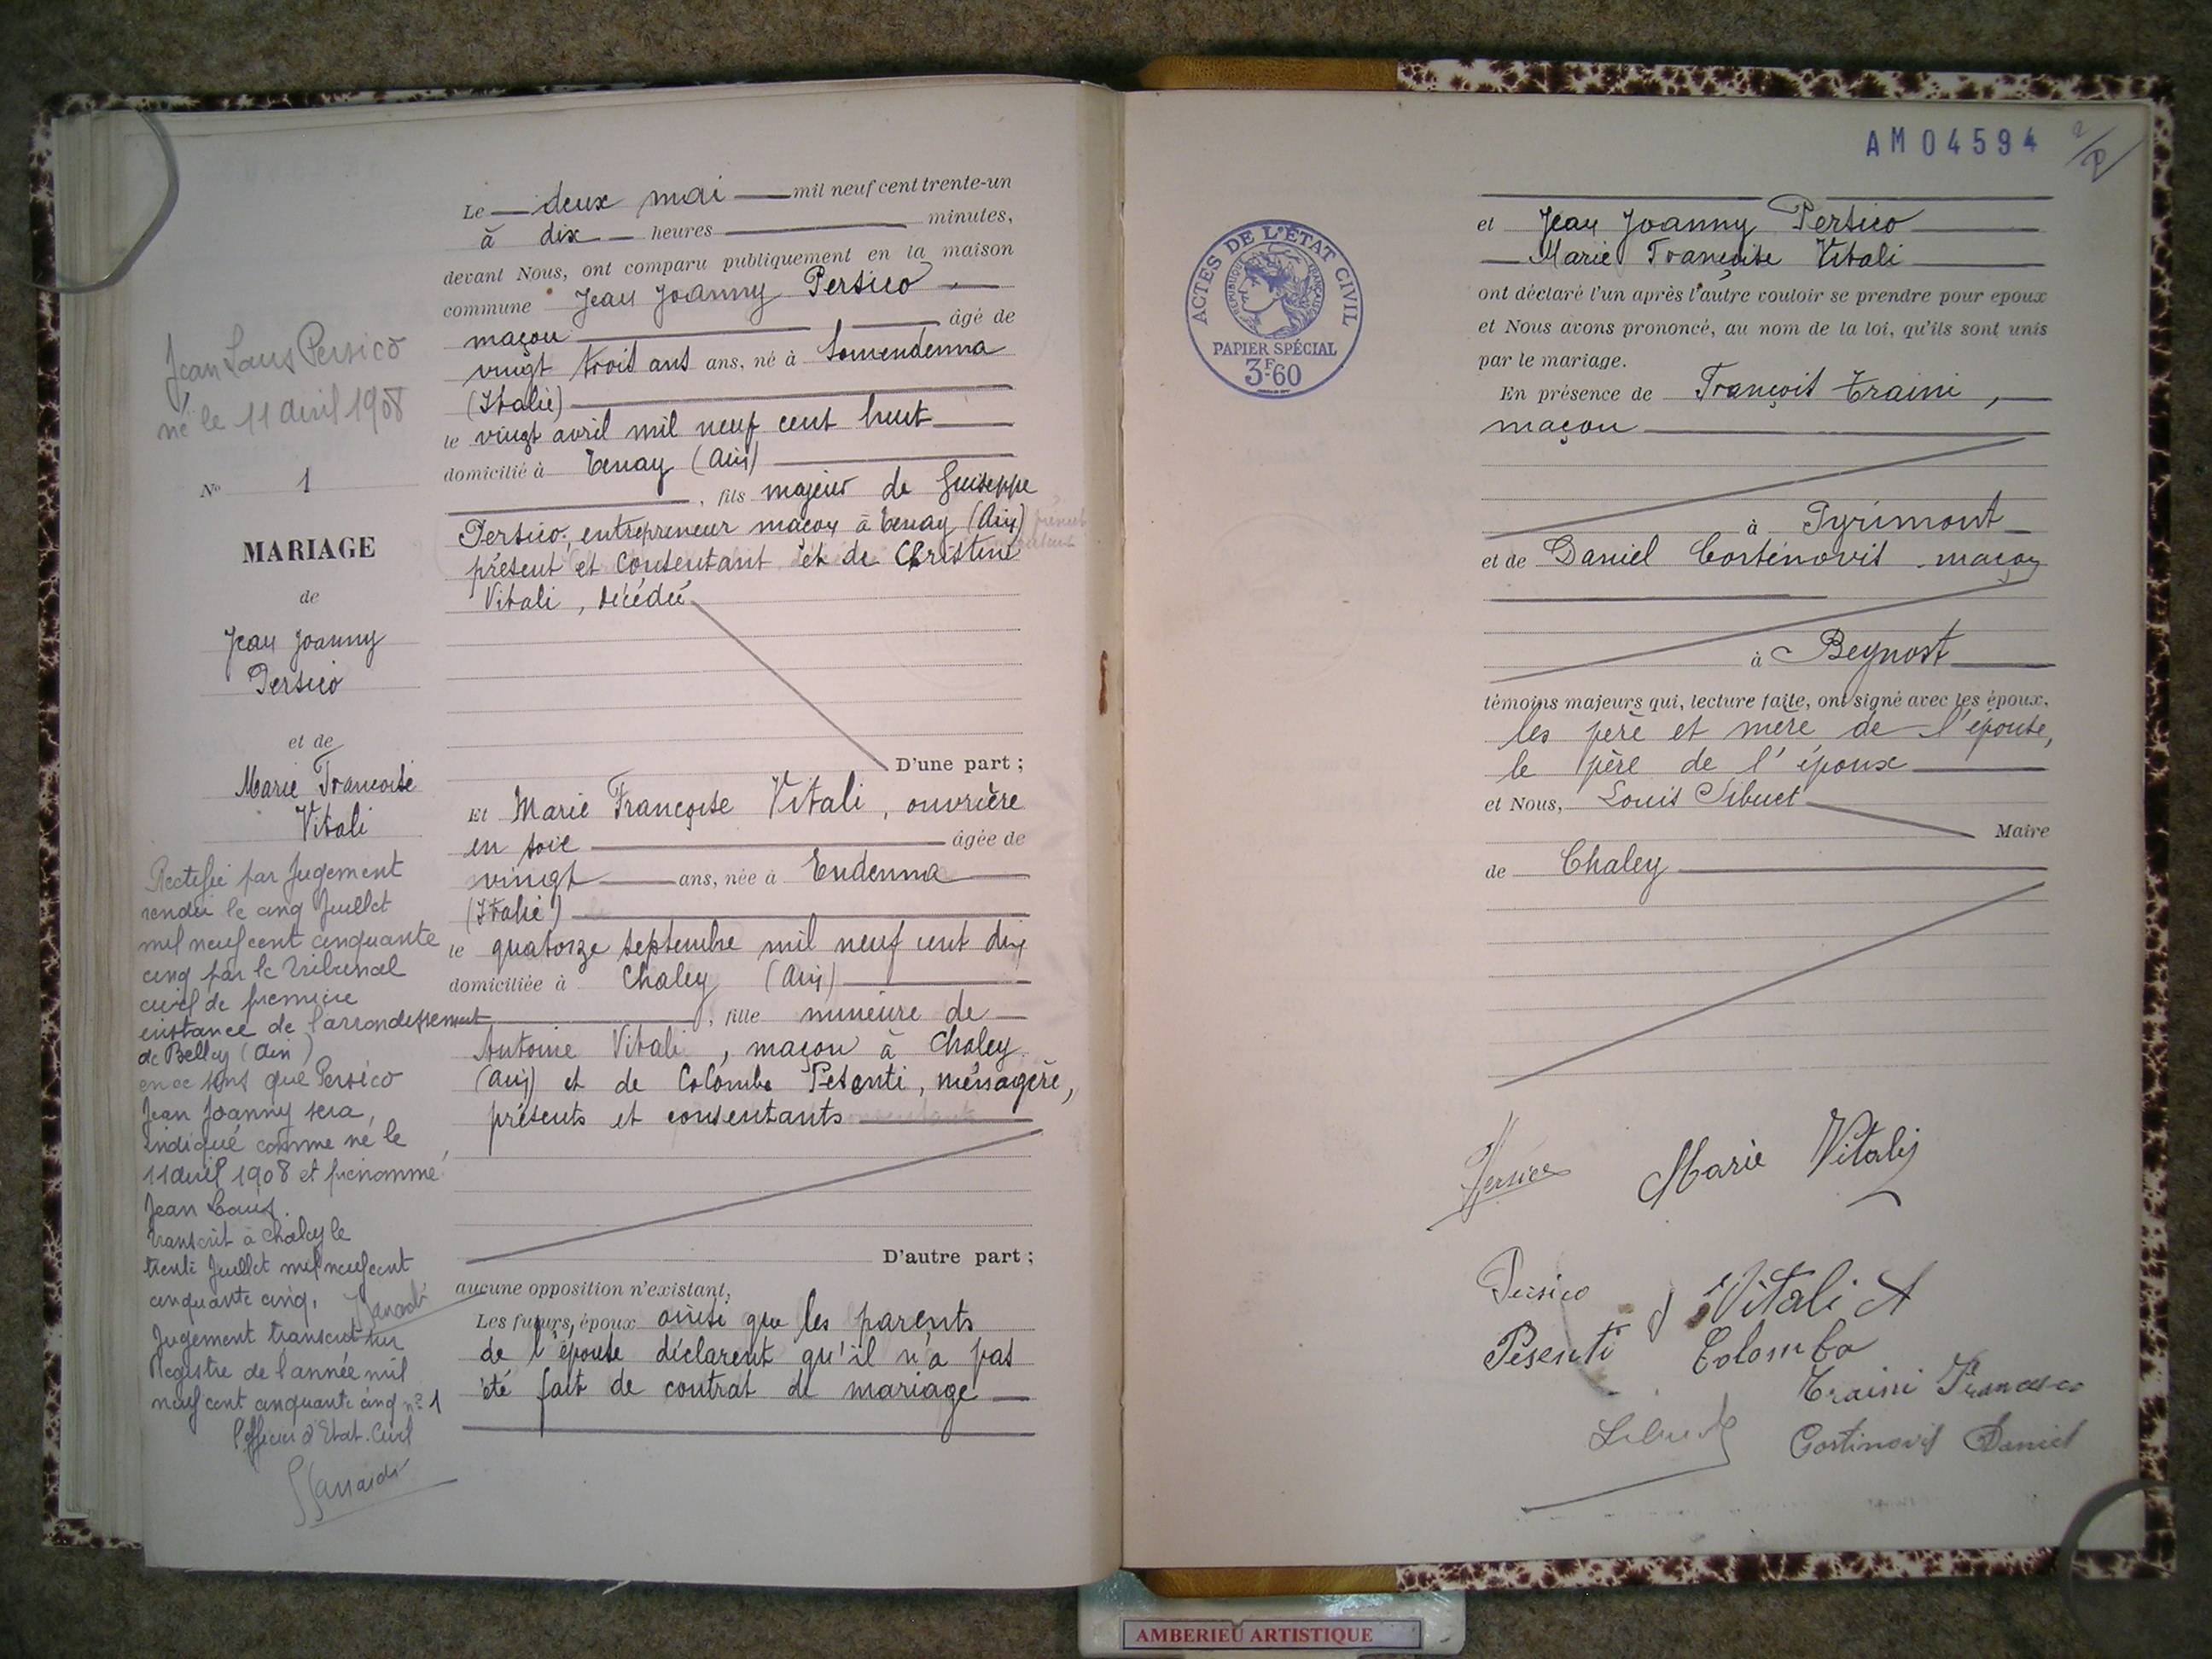 Jean Louis Persico
né le 11 avril 1908
No 1
MARIAGE
de
Jean Joanny
Persico
et de
Marie Françoise
Vitali
Rectifié par Jugement
rendu le cinq Juillet
mil neuf cent cinquante
cinq par le Tribunal
civil de première
instance de l'arrondissement
de Belley (Ain)
en ce sens que Persico
Jean Joanny sera,
indiqué comme né le
11 avril 1908 et prénommé
Jean Louis.
Transcrit à Chaley le
trente Juillet mil neuf cent
cinquante cinq.
Jugement transcrit sur
Registre de l'année mil
neuf cent cinquante cinq no 1
l'officier d'Etat-Civil
Le deux mai mil neuf cent trente-un
à dix heures minutes,
devant Nous, ont comparu publiquement en la maison
commune Jean Joanny Persico
maçon âgé de
vingt trois ans ans, né à Somendenna
(Italie)
le vingt avril mil neuf cent huit
domicilié à Tenay (Ain)
, fils majeur de Guiseppe
Persico, entrepreneur maçon à Tenay (Ain)
présent et consentant et de Christine
Vitali, décédée
D'une part ;
Et Marie Françoise Vitali, ouvrière
en soie âgée de
vingt ans, née à Endenna
(Italie)
le quatorze septembre mil neuf cent dix
domiciliée à Chaley (Ain)
, fille mineure de
Antoine Vitali, maçon à Chaley
(Ain) et de Colombe Pesenti, ménagère,
présents et consentants
D'autre part ;
aucune opposition n'existant,
Les futurs époux ainsi que les parents
de l'épouse déclarent qu'il n'a pas
été fait de contrat de mariage
AM04594
ACTES DE L'ETAT CIVIL
REPUBLIQUE FRANÇAISE
PAPIER SPÉCIAL
3F60
et Jean Joanny Persico
Marie Françoise Vitali
ont déclaré l'un après l'autre vouloir se prendre pour epoux
et Nous avons prononcé, au nom de la loi, qu'ils sont unis
par le mariage.
En présence de François Traini,
maçon
à Pyrimont
et de Daniel Corténovis, maçon
à Beynost
témoins majeurs qui, lecture faite, ont signé avec les époux,
les père et mère de l'épouse,
le père de l'époux
et Nous, Louis Sibuet
Maire
de Chaley
Persico Marie Vitali
Persico Vitali A
Pesenti Colomba
Traini Francesco
Sibuet Cortinovis Daniel
AMBERIEU ARTISTIQUE